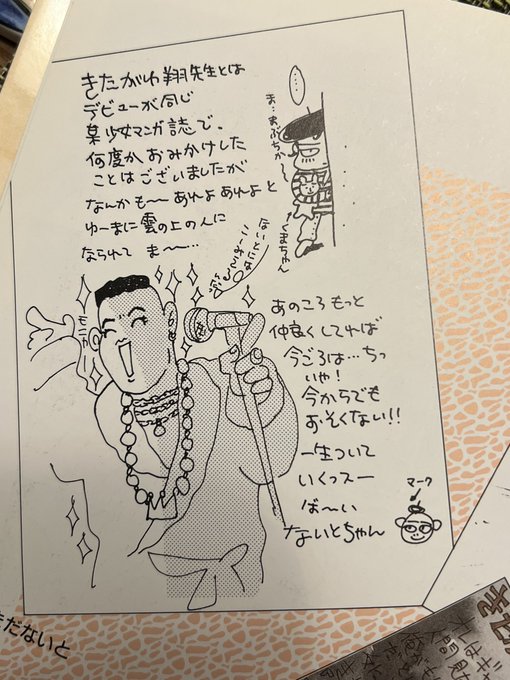 きたがわ翔先生とは
デビューが同じ
某少女マンガ誌で。
何度か、おみかけした
ことはございましたが
なんかも〜あれよあれよと
ゆーまに雲の上の人に
なられて ま〜〜…
‥‥
ま…まぶちか〜〜
くまちゃん
モニカ
あのころもっと
仲良くしてれば
今ごろは…ちっ
いや!
今からでも
おそくない!!
一生ついて
いくっスー
ば〜い
ないとちゃん
マーク
だないと